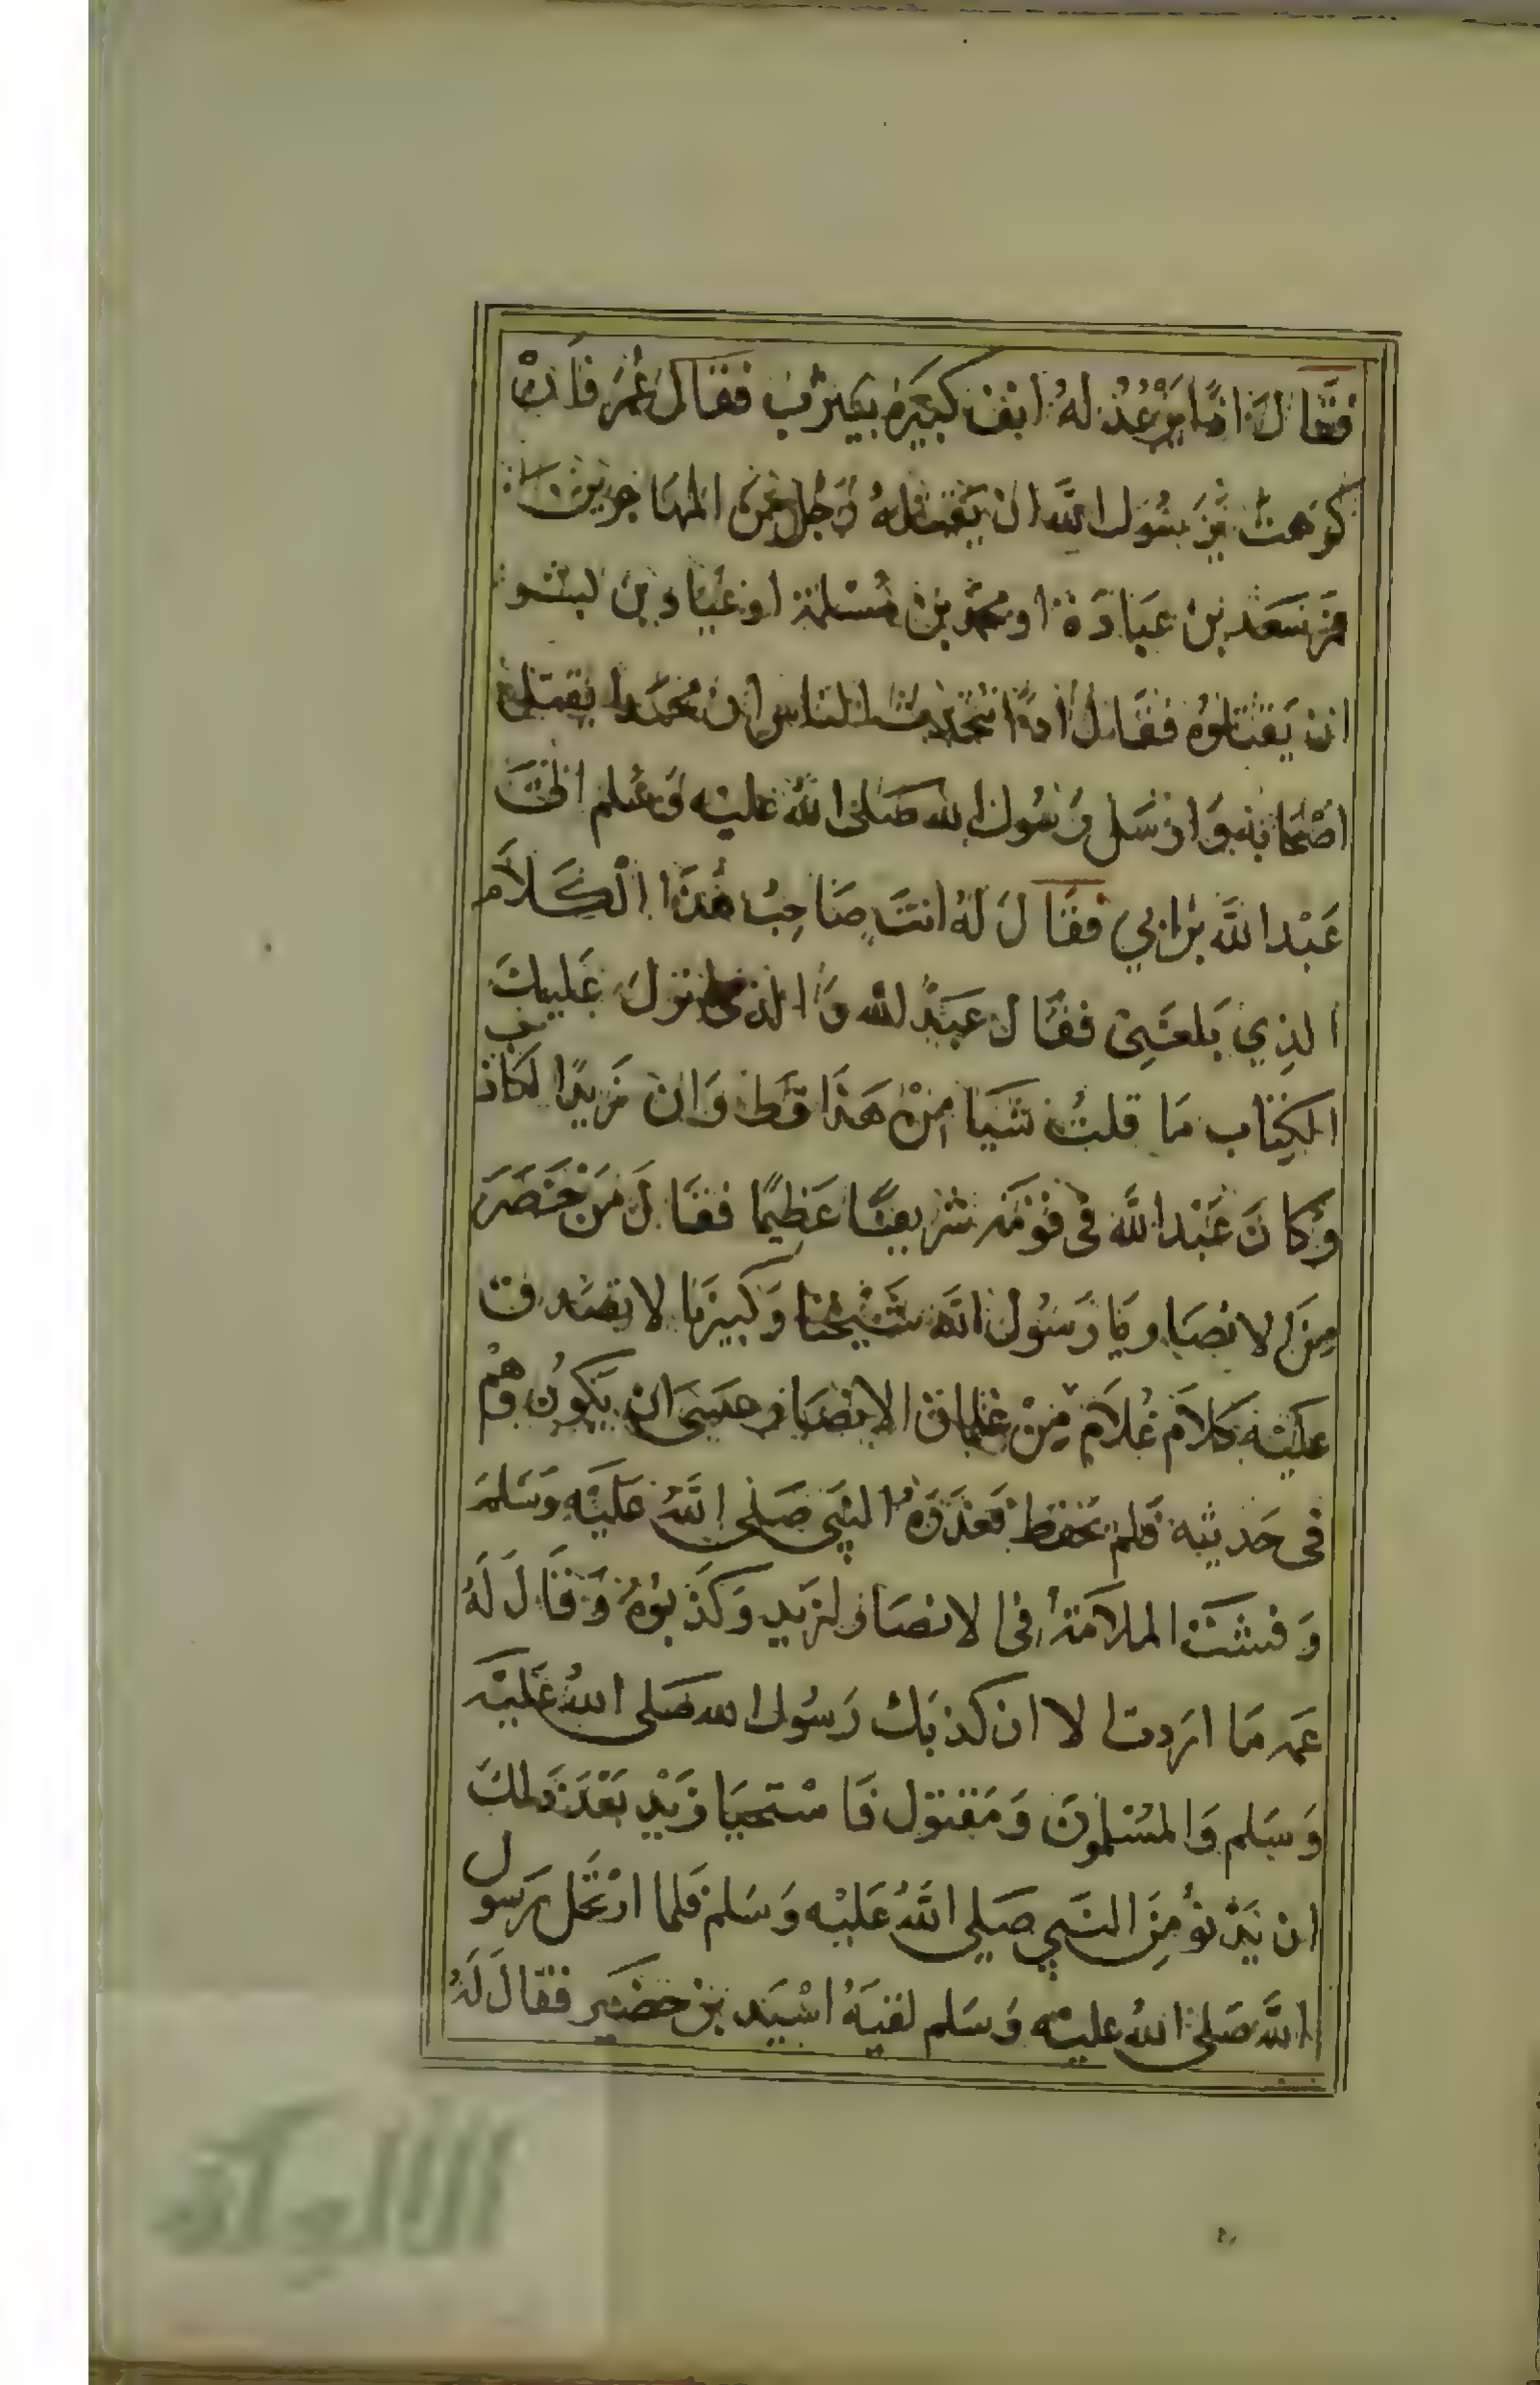 فقال اذًا يرعد له انف كبيرة بيثرب فقال عمر فان
كرهت يرسول الله ان يقتله رجل من المهاجرين
مر سعد بن عبادة او محمد بن مسلمة او عباد بن بشر
ان يقتلوه فقال اذًا يتحدث الناس ان محمدا يقتل
اصحابه وارسل رسول الله صلى الله عليه وسلم الى
عبد الله بن ابي فقال له انت صاحب هذا الكلام
الذي بلغني فقال عبد الله والذي انزل عليك
الكتاب ما قلت شيا من هذا قط وان زيدًا لكاذب
وكان عبد الله في قومه شريفًا عظيمًا فقال من حضر
من الانصار يا رسول الله شيخنا وكبيرنا لا تصدق
عليه كلام غلام من غلمان الانصار عسى ان يكون وهم
في حديثه فلم يحفظ فعذره النبي صلى الله عليه وسلم
وفشت الملامة في الانصار لزيد وكذبوه وقال له
عمه ما اردت الا ان كذبك رسول الله صلى الله عليه
وسلم والمسلمون ومقتول فاستحيا زيد بعد ذلك
ان يدنو من النبي صلى الله عليه وسلم فلما ارتحل رسول
الله صلى الله عليه وسلم لقيه اسيد بن حضير فقال له
الألوكة